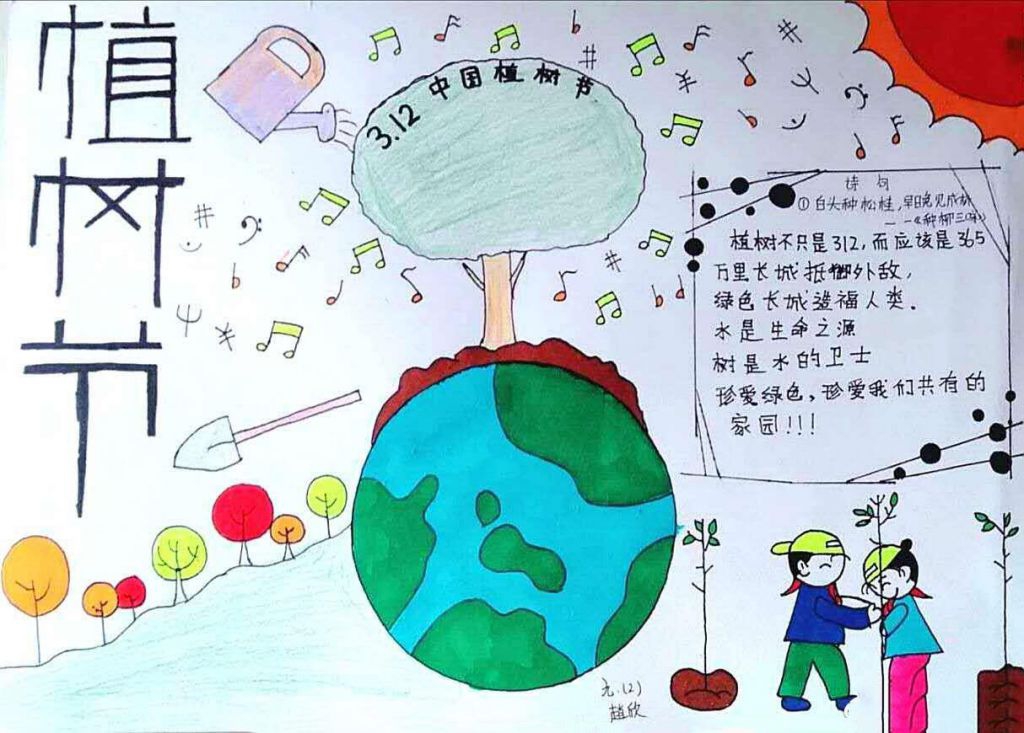 植树节
3.12 中国植树节
诗句
①白头种松桂，早晚见成林
——《种柳三咏》
植树不只是312，而应该是365
万里长城抵御外敌，
绿色长城造福人类．
水是生命之源
树是水的卫士
珍爱绿色，珍爱我们共有的
家园！！！
赵欣